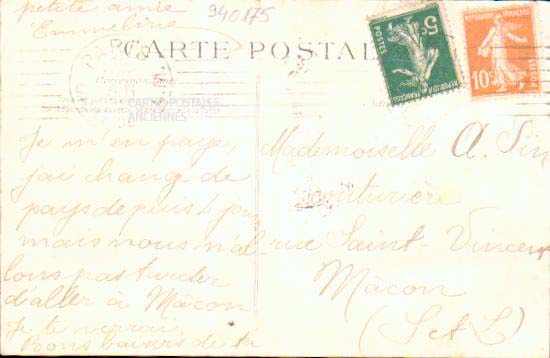 petite amie
Emmeline
940175
CARTE POSTALE
Correspondance
CARTES-POSTALES
ANCIENNES
PARIS
5c
POSTES
REPUBLIQUE FRANÇAISE
REPUBLIQUE FRANÇAISE
10c
POSTES
Je m'en paye,
j'ai changé de
pays depuis 4 jours
mais nous n'al
lons pas tarder
d'aller à Mâcon
Je te verrai
Bons baisers de ta
Mademoiselle A.
couturière
rue Saint-Vincent
Mâcon
(S et L)